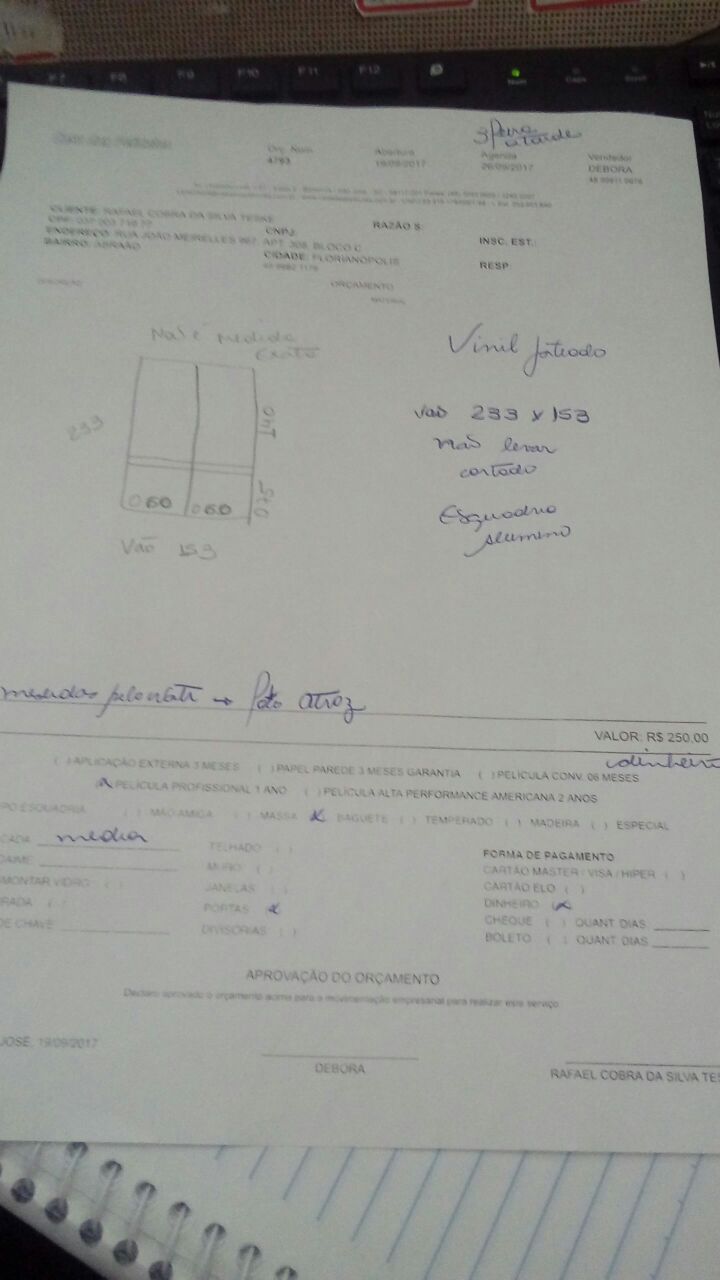 F7 F8 F9 F10 F11 F12
Num Caps Scroll
3ª feira
a tarde
Orç. Num. Abertura Agenda Vendedor
4793 19/09/2017 26/09/2017 DEBORA
CLIENTE: RAFAEL COBRA DA SILVA TESKE
CNPJ: RAZÃO S:
ENDEREÇO: RUA JOÃO MEIRELLES 997, APT. 308, BLOCO C INSC. EST.:
BAIRRO: ABRAÃO CIDADE: FLORIANÓPOLIS RESP:
DESCRIÇÃO ORÇAMENTO
MATERIAL
Não é medida
exata
Vinil jateado
233
vão 233 x 153
não levar
cortado
060 060
Esquadria
alumino
Vão 153
medidas pelo → foto atroz
VALOR: R$ 250,00
dinheiro
( ) APLICAÇÃO EXTERNA 3 MESES ( ) PAPEL PAREDE 3 MESES GARANTIA ( ) PELÍCULA CONV. 06 MESES
(x) PELÍCULA PROFISSIONAL 1 ANO ( ) PELÍCULA ALTA PERFORMANCE AMERICANA 2 ANOS
PO ESQUADRIA ( ) MÃO AMIGA ( ) MASSA (x) BAGUETE ( ) TEMPERADO ( ) MADEIRA ( ) ESPECIAL
CADA media TELHADO ( )
DAIME MURO ( )
MONTAR VIDRO ( ) JANELAS ( )
RADA ( ) PORTAS (x)
DE CHAVE DIVISÓRIAS ( )
FORMA DE PAGAMENTO
CARTÃO MASTER / VISA / HIPER ( )
CARTÃO ELO ( )
DINHEIRO (x)
CHEQUE ( ) QUANT DIAS
BOLETO ( ) QUANT DIAS
APROVAÇÃO DO ORÇAMENTO
Declaro aprovado o orçamento acima para a movimentação empresarial para realizar este serviço
JOSE, 19/09/2017
DEBORA RAFAEL COBRA DA SILVA TES